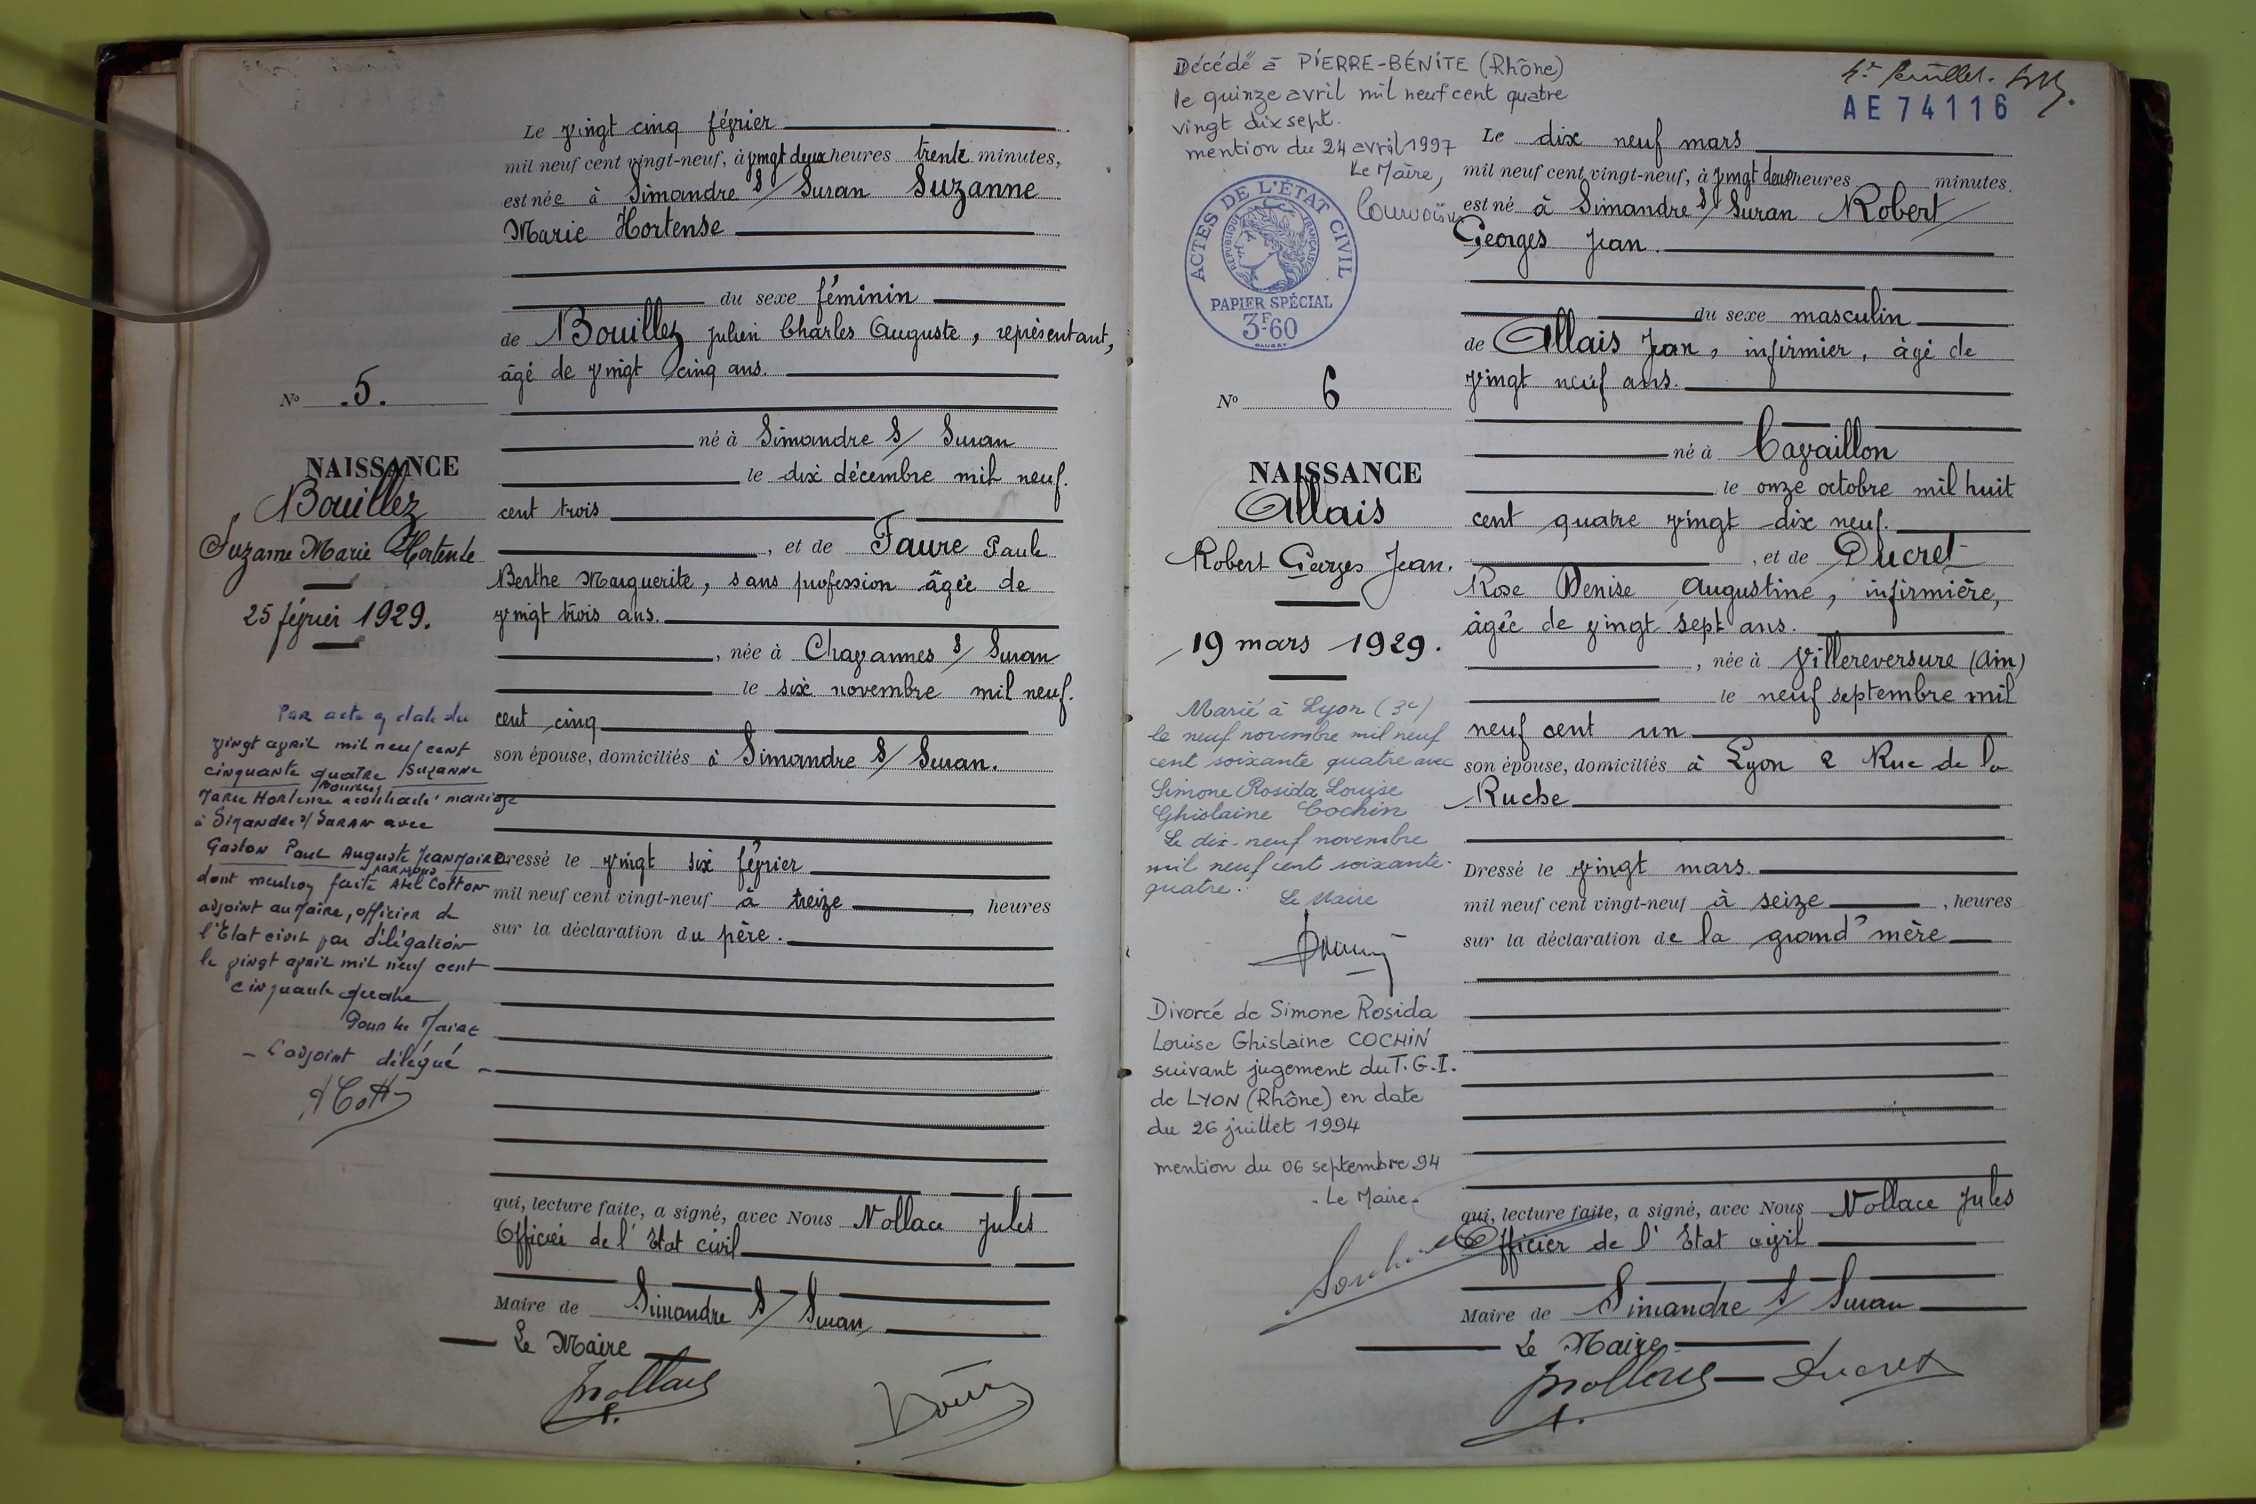 Le vingt cinq février
mil neuf cent vingt-neuf, à vingt deux heures trente minutes,
est née à Simandre s/ Suran Suzanne
Marie Hortense
du sexe féminin
de Bouillez Julien Charles Auguste, représentant,
âgé de vingt cinq ans.
né à Simandre s/ Suran
le dix décembre mil neuf
cent trois
, et de Faure Paule
Berthe Marguerite, sans profession âgée de
vingt trois ans.
, née à Chavannes s/ Suran
le six novembre mil neuf
cent cinq
son épouse, domiciliés à Simandre s/ Suran.
Dressé le vingt six février
mil neuf cent vingt-neuf à treize heures
sur la déclaration du père.
qui, lecture faite, a signé, avec Nous Nollace Jules
Officier de l'Etat civil
Maire de Simandre s/ Suran
Le Maire
No .5.
NAISSANCE
Bouillez
Suzanne Marie Hortense
25 février 1929.
Par acte en date du
vingt avril mil neuf cent
cinquante quatre Suzanne
Marie Hortense Bouillez a contracté mariage
à Simandre s/ Suran avec
Gaston Paul Auguste Jeanmaire
dont mention faite par nous Abel Cotton
adjoint au Maire, officier de
l'Etat civil par délégation
le vingt avril mil neuf cent
cinquante quatre
Pour le Maire
- L'adjoint délégué -
ACott
Décédé à PIERRE-BÉNITE (Rhône)
le quinze avril mil neuf cent quatre
vingt dix sept.
mention du 24 avril 1997
Le Maire,
ACTES DE L'ÉTAT CIVIL
RÉPUBLIQUE FRANÇAISE
PAPIER SPÉCIAL
3F.60
4e feuillet.
AE 74116
Le dix neuf mars
mil neuf cent vingt-neuf, à vingt deux heures minutes.
est né à Simandre s/ Suran Robert
Georges Jean.
du sexe masculin
de Allais Jean, infirmier, âgé de
vingt neuf ans.
né à Cavaillon
le onze octobre mil huit
cent quatre vingt dix neuf.
, et de Ducret
Rose Denise Augustine, infirmière,
âgée de vingt sept ans.
, née à Villereversure (Ain)
le neuf septembre mil
neuf cent un
son épouse, domiciliés à Lyon 2 Rue de la
Ruche
Dressé le vingt mars.
mil neuf cent vingt-neuf à seize , heures
sur la déclaration de la grand'mère
qui, lecture faite, a signé, avec Nous Nollace Jules
Officier de l'Etat civil
Maire de Simandre s/ Suran
Le Maire
Ducret
No 6
NAISSANCE
Allais
Robert Georges Jean.
19 mars 1929.
Marié à Lyon (3e)
le neuf novembre mil neuf
cent soixante quatre avec
Simone Rosida Louise
Ghislaine Cochin
Le dix-neuf novembre
mil neuf cent soixante-
quatre.
Le Maire
Divorcé de Simone Rosida
Louise Ghislaine COCHIN
suivant jugement du T.G.I.
de LYON (Rhône) en date
du 26 juillet 1994
mention du 06 septembre 94
- Le Maire -